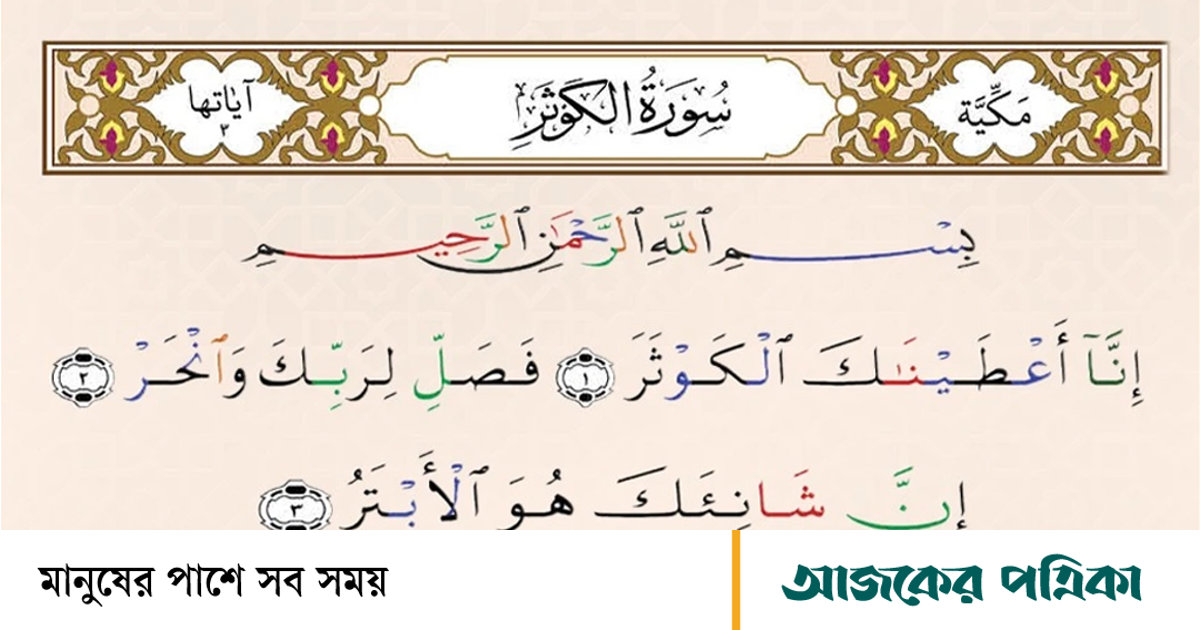 مَكِّيَّة سُورَةُ الكَوْثَرِ آيَاتها ٣
بِسْمِ ٱللَّهِ ٱلرَّحْمَٰنِ ٱلرَّحِيمِ
إِنَّآ أَعْطَيْنَٰكَ ٱلْكَوْثَرَ ١ فَصَلِّ لِرَبِّكَ وَٱنْحَرْ ٢
إِنَّ شَانِئَكَ هُوَ ٱلْأَبْتَرُ ٣
মানুষের পাশে সব সময়
আজকের পত্রিকা